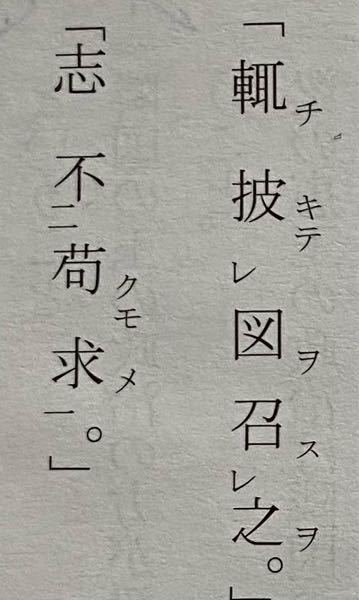 「輒チ披キテレ図ヲ召スレ之ヲ。」
「志不二苟クモ求メ一。」